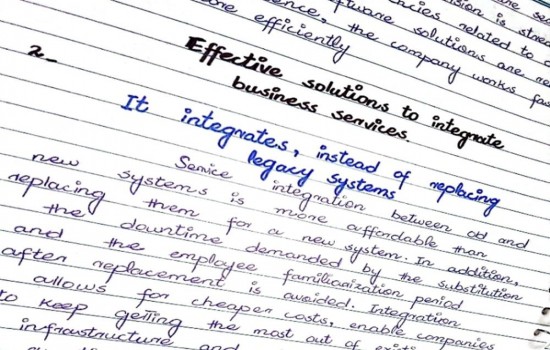 sion is stre
ncies related to
ence, the software solutions are ne
one efficiently the company works fas
2_ Effective solutions to integrate
business services.
It integrates, instead of replacing
legacy systems
Service integration between old and
new systems is more affordable than
replacing them for a new system. In addition,
the downtime demanded by the substitution
and the employee familiarization period
after replacement is avoided. Integration
allows for cheaper costs, enable companies
to keep getting the most out of
infrastructure and